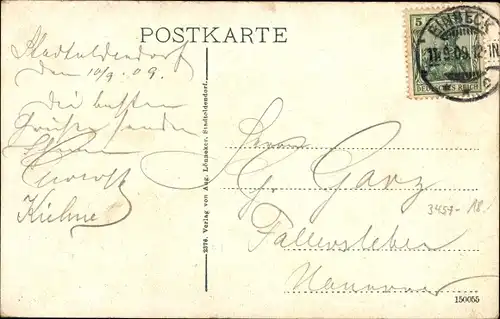 POSTKARTE
Stadtoldendorf
den 10/9. 09.
Die besten
Grüße senden
Ihnen
Kühne
2378. Verlag von Aug. Lönneker, Stadtoldendorf.
5
DEUTSCHES REICH
EINBECK
11.9.09.12-1N
Herrn
G. Garz
Fallersleben
Hannover
3457-
18.
150055